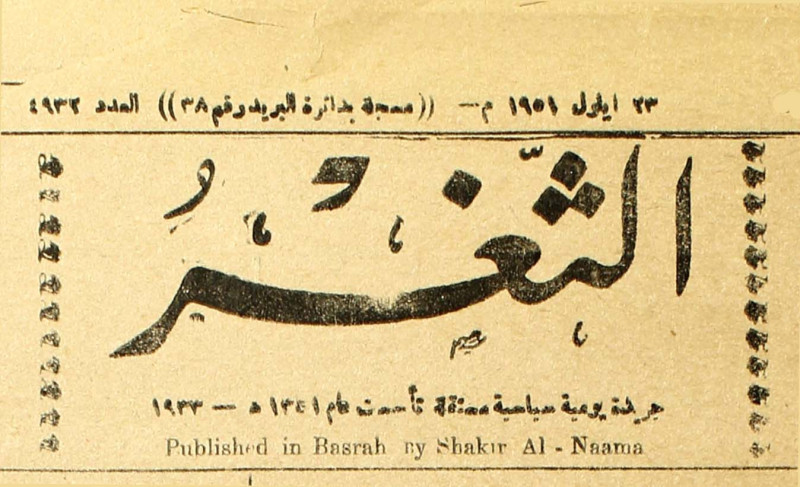 ٢٣ ايلول ١٩٥١ م— ((مسجلة بدائرة البريد رقم ٣٨)) العدد ٤٩٣٢
الثَّغْرُ
جريدة يومية سياسية مستقلة تأسست عام ١٣٤١ ه — ١٩٣٣
Published in Basrah by Shakir Al - Naama